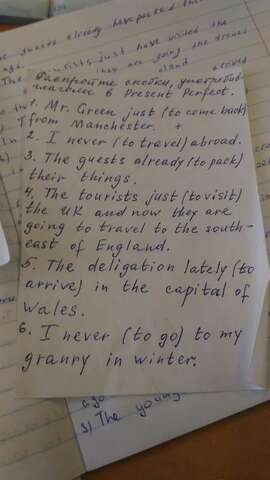 e guests already have packed the
urists just have visited the
they are going
Раскройте скобки, употребив
глаголы в Present Perfect.
1. Mr. Green just (to come back)
from Manchester. +
2. I never (to travel) abroad.
3. The guests already (to pack)
their things.
4. The tourists just (to visit)
the UK and now they are
going to travel to the south-
east of England.
5. The deligation lately (to
arrive) in the capital of
Wales.
6. I never (to go) to my
granny in winter.
ago
3) The young